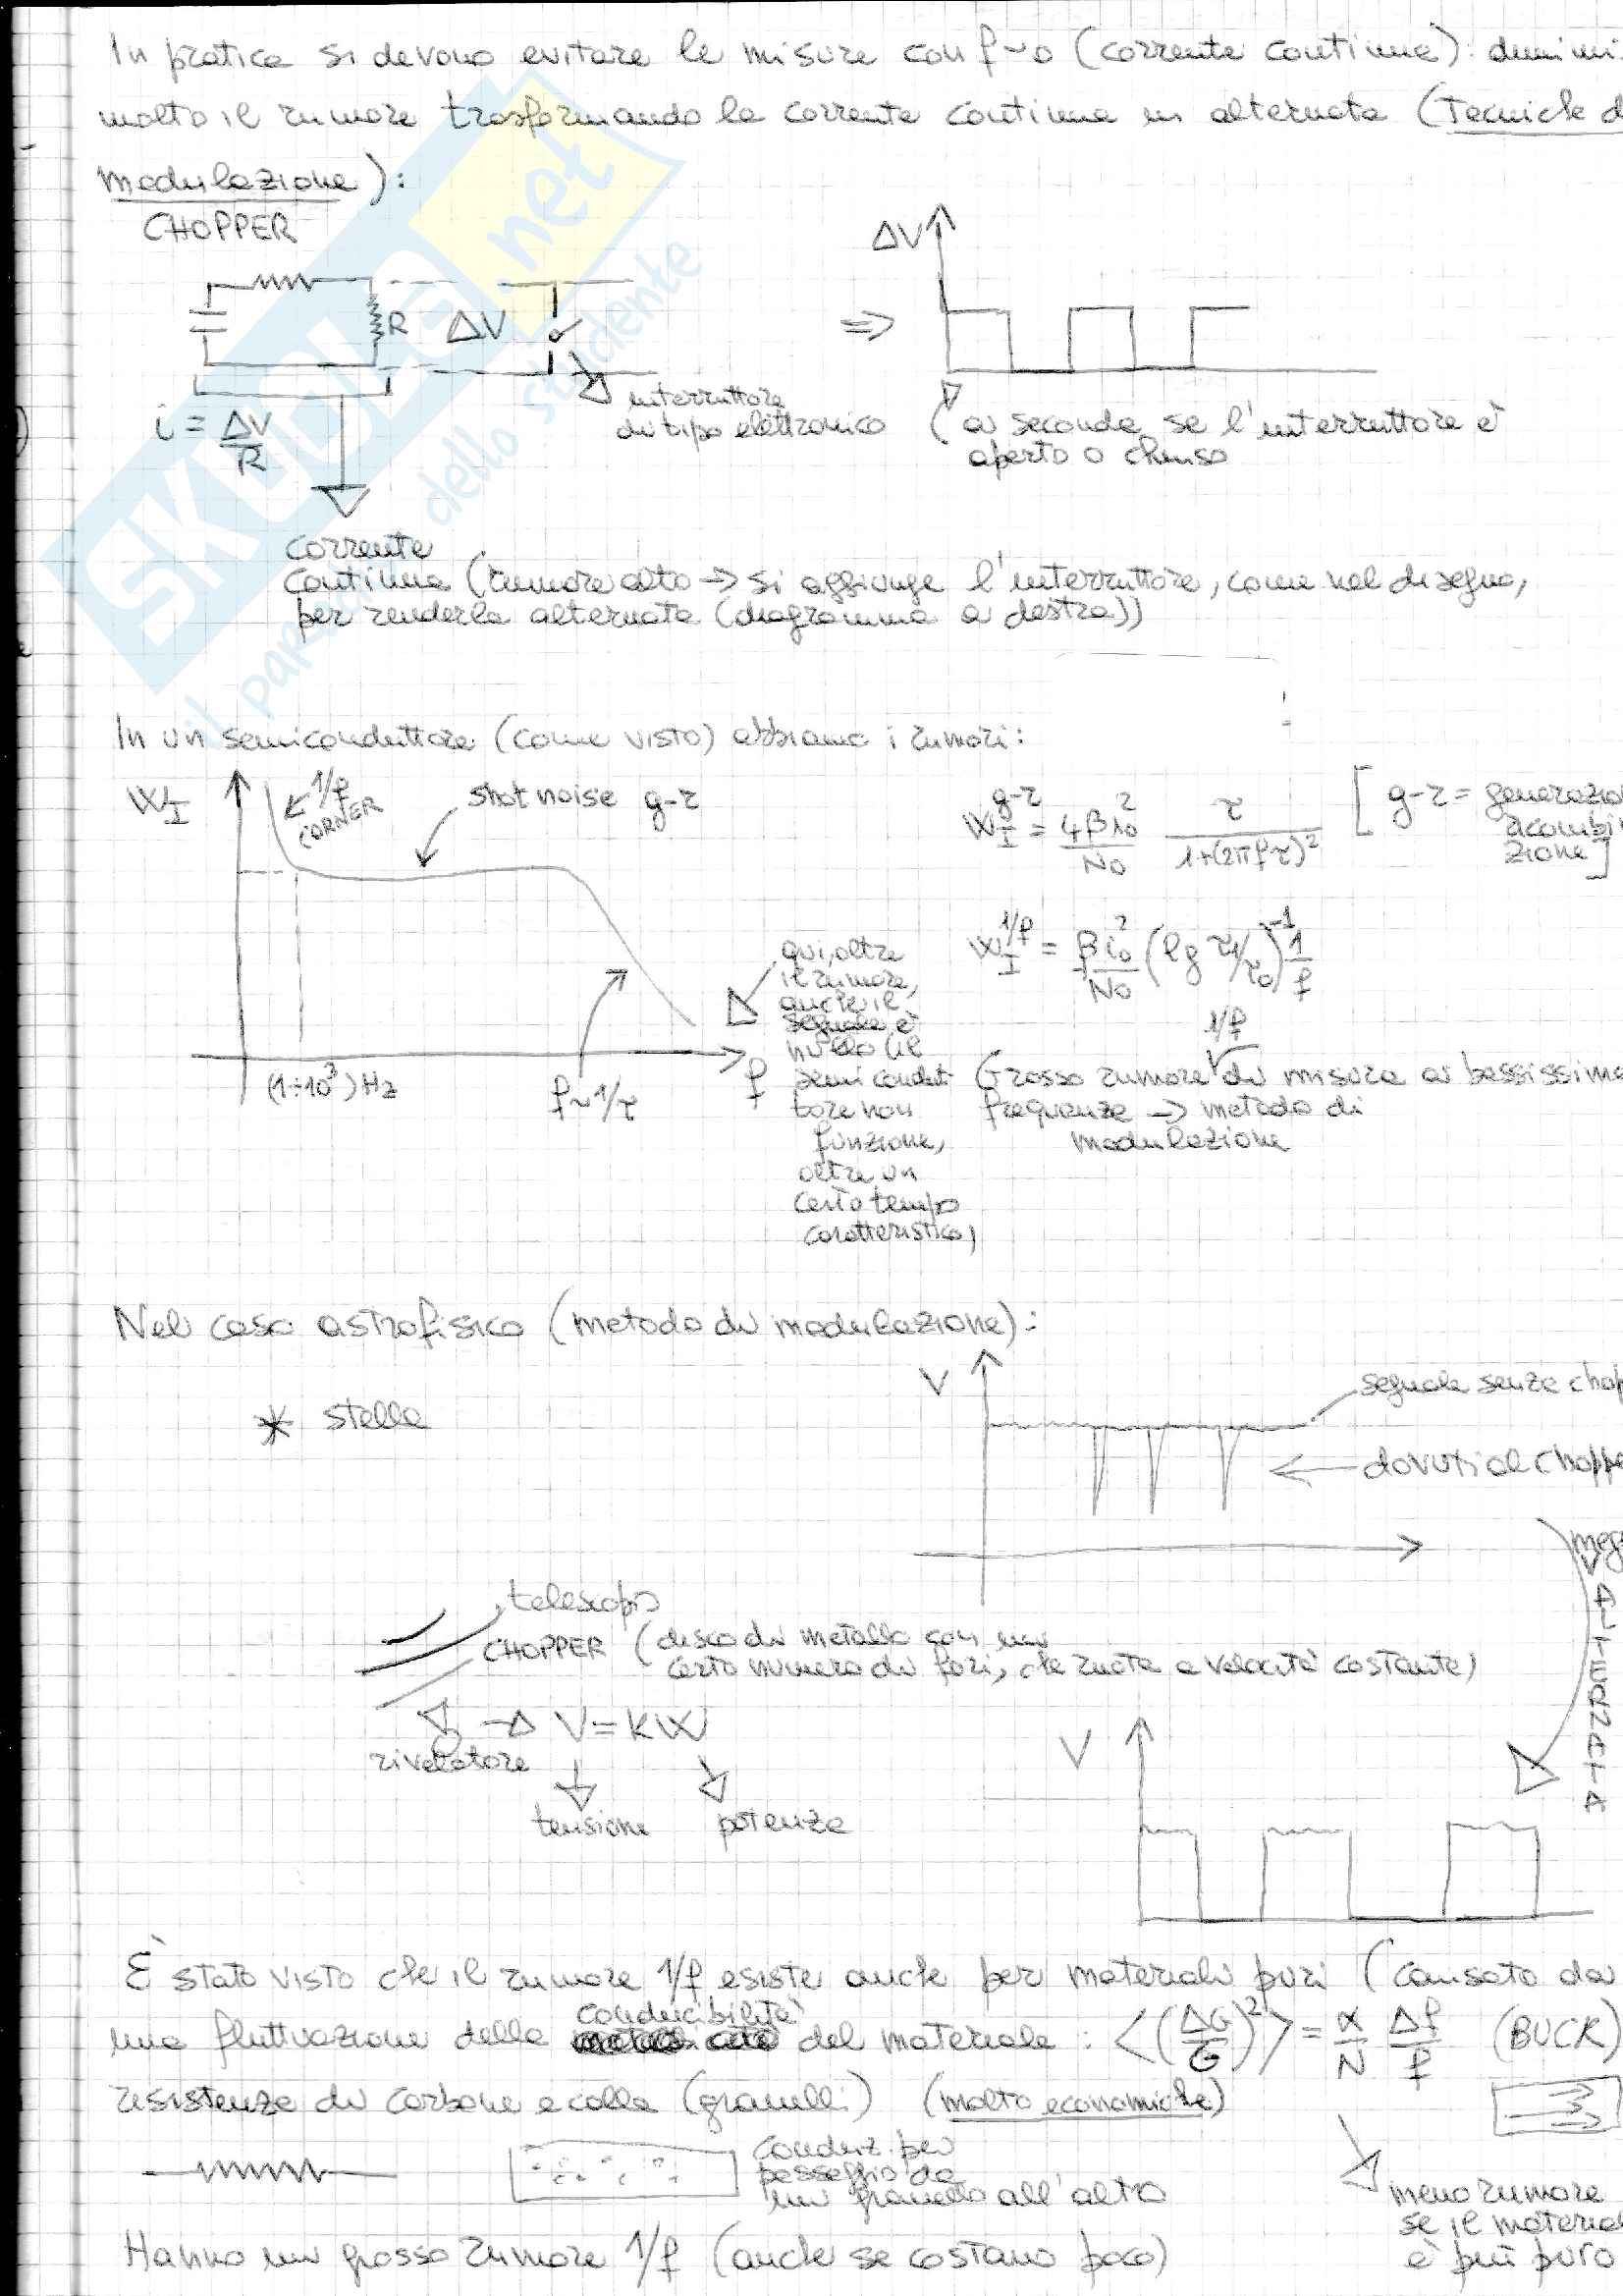 In pratica si devono evitare le misure con f~0 (corrente continua): dimini
molto il rumore trasformando la corrente continua in alternata (Tecniche d
modulazione):
CHOPPER
ΔV
R
ΔV
⇒
interruttore
di tipo elettronico
i = ΔV/R
(a seconda se l'interruttore è
aperto o chiuso
corrente
continua (rumore alto → si aggiunge l'interruttore, come nel disegno,
per renderla alternata (diagramma a destra))
In un semiconduttore (come visto) abbiamo i rumori:
W_I
1/f
CORNER
shot noise g-r
W_I^{g-r} = 4βi₀²/N₀ τ/(1+(2πfτ)²)
[g-r = generazio
ricombi
zione]
W_I^{1/f} = βi₀²/N₀ (lg τ₁/τ₀)^{-1} 1/f
qui, oltre
il rumore,
anche il
segnale è
nullo (il
semicondut
tore non
funziona,
oltre un
certo tempo
caratteristico)
(1÷10³) Hz
f~1/τ
f
1/f
Grosso rumore di misura a bassissime
frequenze → metodo di
modulazione
Nel caso astrofisico (metodo di modulazione):
stella
V
segnale senza chop
dovuti al choppe
meg
ALTERNATA
telescopio
CHOPPER (disco di metallo con un
certo numero di fori, che ruota a velocità costante)
rivelatore
V = KW
tensione
potenza
V
È stato visto che il rumore 1/f esiste anche per materiali puri (causato da
una fluttuazione della conducibilità del materiale: <(ΔG/G)²> = α/N Δf/f (BUCK)
resistenze di carbone e colla (granelli) (molto economiche)
conduz. per
passaggio da
un granello all'altro
meno rumore
se il material
è più puro
Hanno un grosso rumore 1/f (anche se costano poco)
SKUOLA.net
il paradiso dello studente